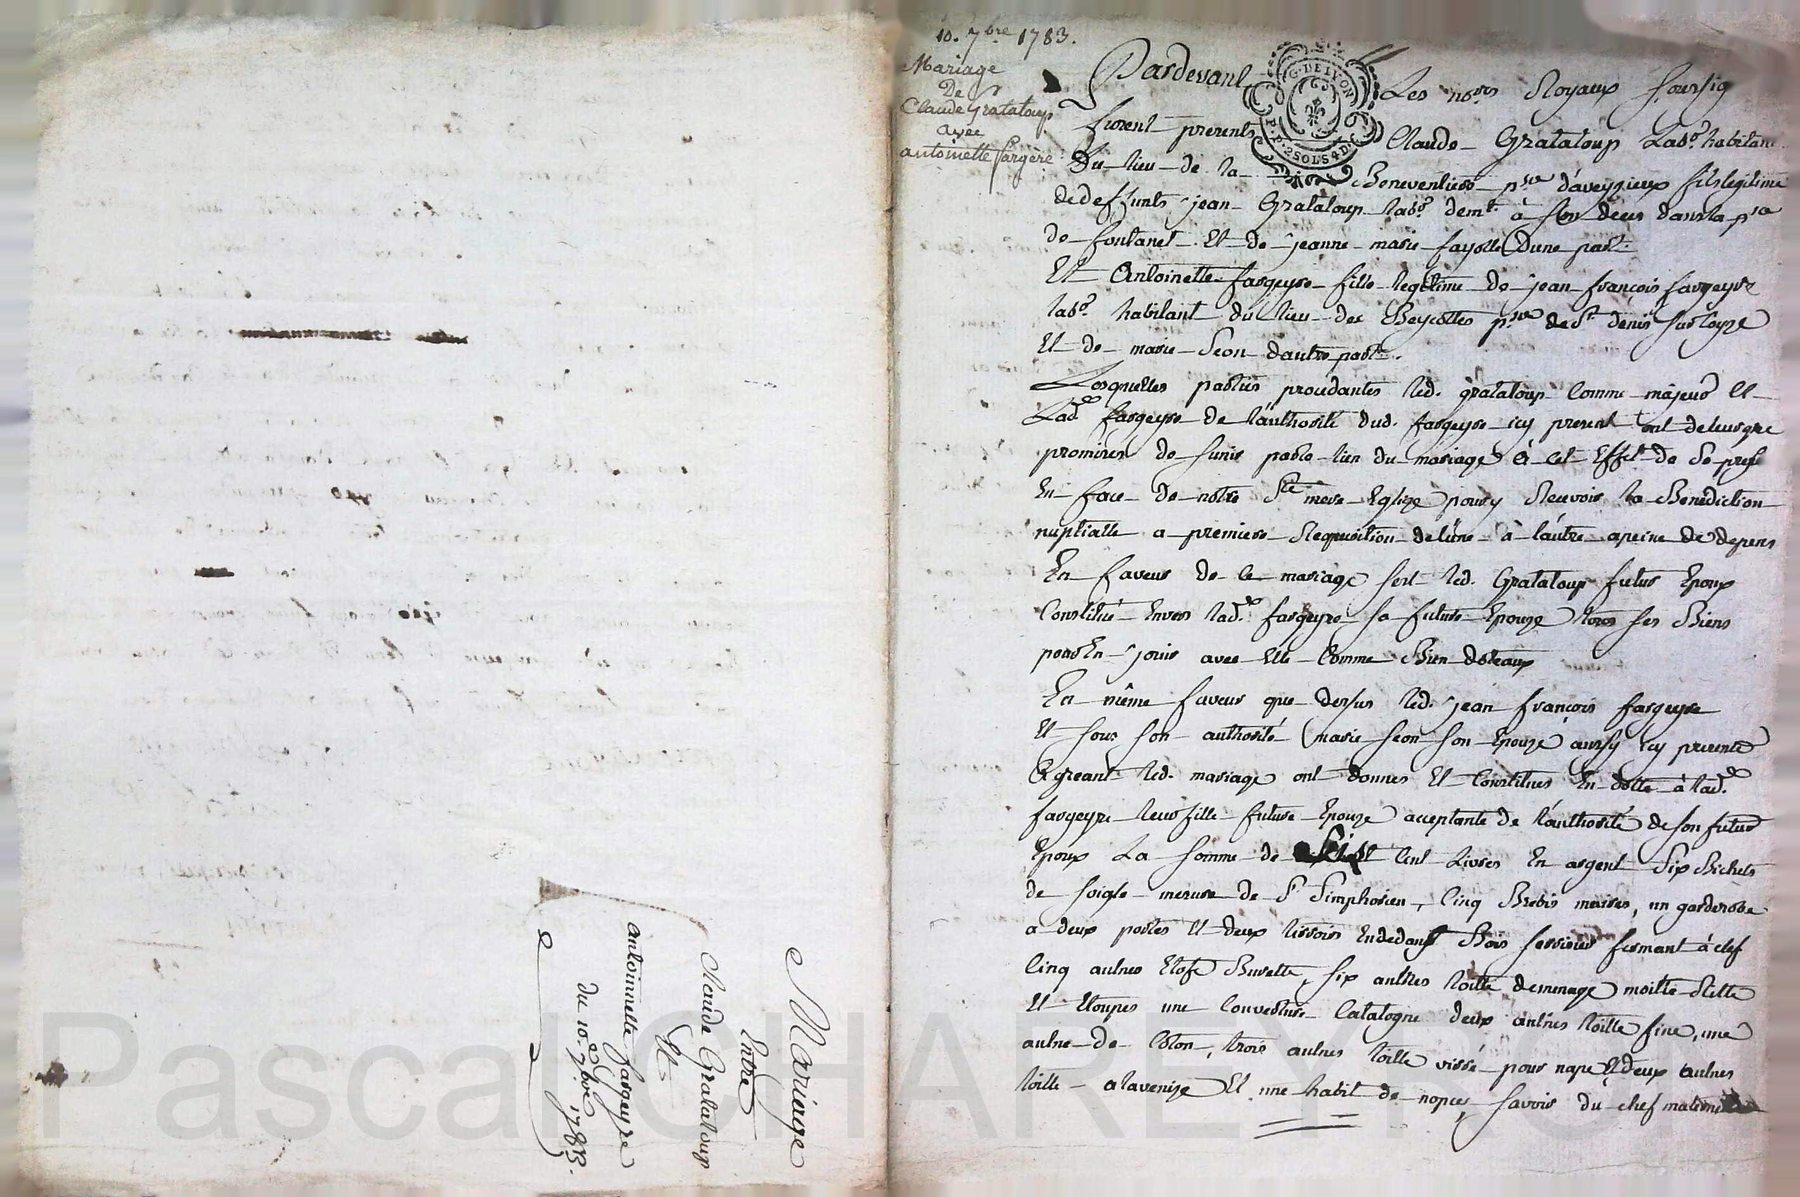 Mariage
Entre
Claude Grataloup
Et
antoinnette fargeyre
du 10. 7bre 1783.
10. 7bre 1783.
Mariage
De
Claude Grataloup
avec
antoinette fargere
G. DE LYON
P. P. 2 SOLS 4 D.
Pardevant Les nores Royaux Soussig
furent presents Claude Grataloup Labr. habitant
Du lieu de la Boneventiere psse d'aveyzieux fils legitime
de deffunts jean Grataloup labr. demt. à son deces dans la psse
de fontanet Et de jeanne marie fayolle Dune part.
Et Antoinette fargeyre fille legitime de jean françois fargeyre
labr. habitant du lieu des Beycottes psse de St denis sur Coyze
Et de marie Seon dautre part.
Lesquelles parties procedantes led. grataloup Comme majeur Et
Lade fargeyre de l'authorité dud. fargeyre icy present ont de leur gre
promires de sunir par le lien du mariage à cet Effet de Se pres
En face de notre Ste mere Eglize pour y Recevoir la Benediction
nuptialle a premiere Requisition de lune à lautre a peine de depens
En faveur de ce mariage sest led. Grataloup futur Epoux
Constitué Envers lade. fargeyre sa future Epouze tous ses Biens
pour En jouir avec Elle Comme Bien doteaux
En même faveur que dessus led. jean françois fargeyre
Et sous son authorité marie seon son Epouze aussy icy presente
Agreant led. mariage ont donnes Et Constitues En dotte à lade.
fargeyre leur fille future Epouze acceptante de l'authorité de son futur
Epoux La somme de Sept Cent Livres En argent Six Bichets
de soigle mesure de St Simphorien, Cinq Brebis meires, un garderobe
a deux portes Et deux tiroirs En dedans Bois serisier fermant à clef
Cinq aulnes Etofe Buratte, six aulnes toille de menage moitie Ritte
Et Etoupes une Couverture Catalogne deux aulnes toille fine, une
aulne de Coton, trois aulnes toille vissé pour nape Et deux aulnes
toille a la venize Et une habit de nopces, savoir du chef maternel
Pascal CHAREYRON